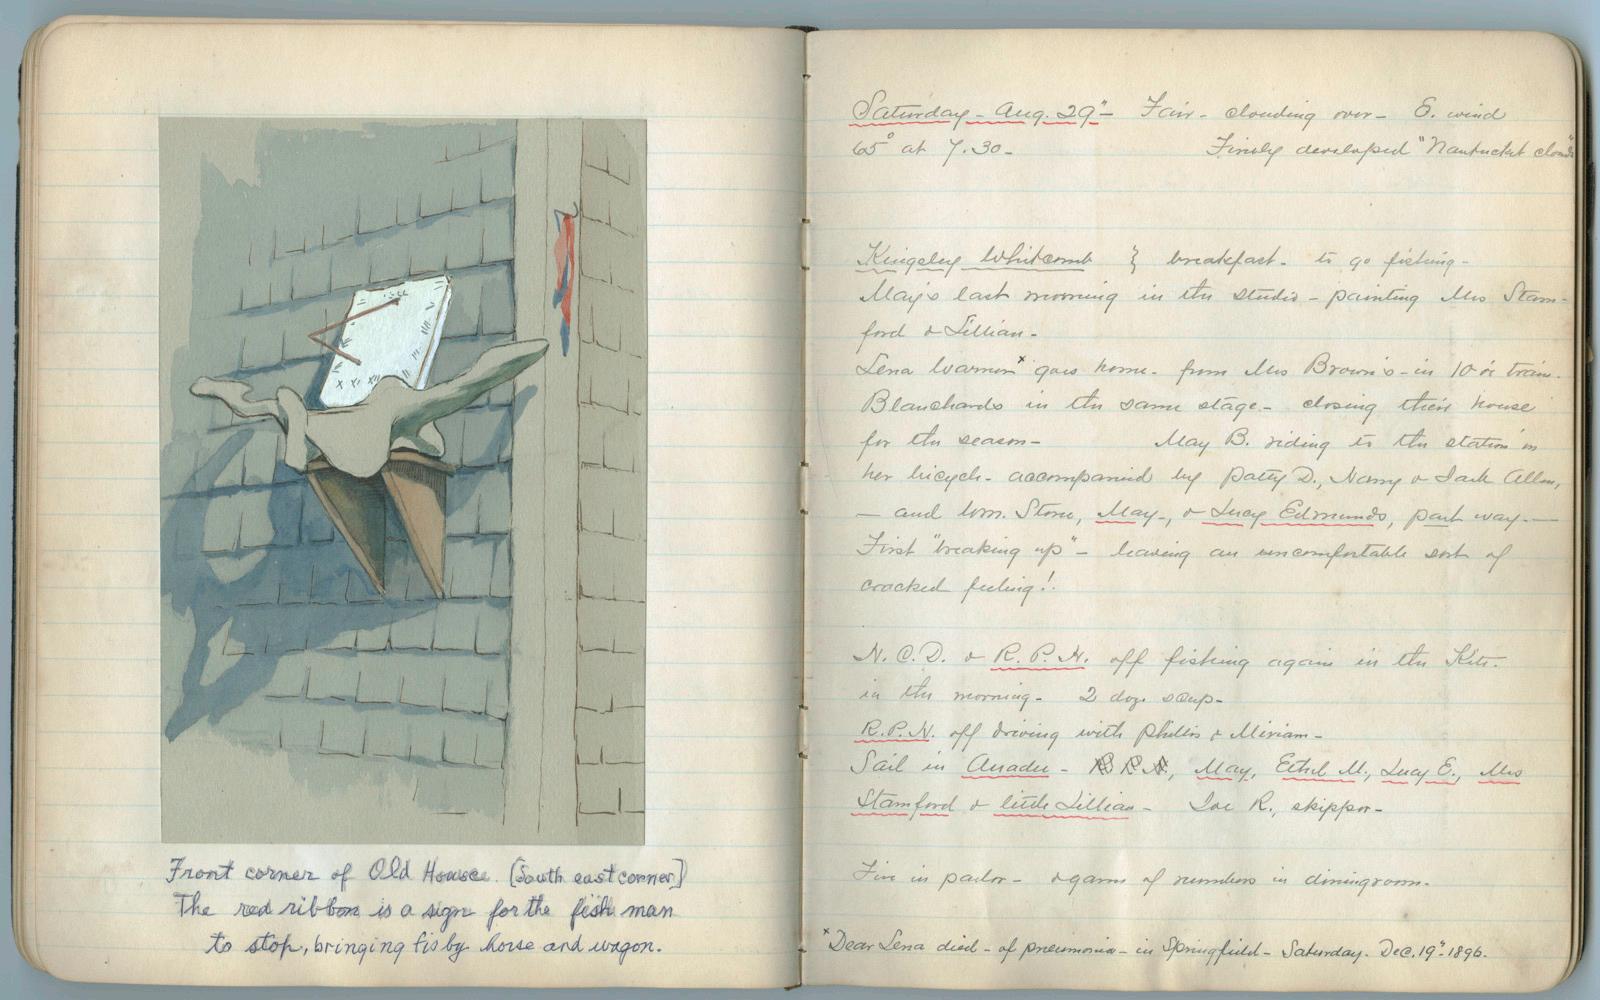 Front corner of Old House. [South east corner]
The red ribbon is a sign for the fish man
to stop, bringing fis by horse and wagon.
Saturday - Aug. 29" - Fair - clouding over - E. wind
65° at 7.30 - Finely developed "Nantucket clouds"
Kingsley Whitcomb } breakfast - to go fishing -
May's last morning in the studio - painting Mrs Stam-
ford & Lillian -
Lena × goes home - from Mrs Brown's - in 10 train -
Blanchards in the same stage - closing their house
for the season - May B. riding to the station on
her bicycle - accompanied by Patty D., Nanny & Jack Allen,
- and Wm. Stone, May -, & Lucy Edmunds, part way. -
First "breaking up" - leaving an uncomfortable sort of
cracked feeling!
N. C. D. & R. P. N. off fishing again in the Kite.
in the morning - 2 doz. scup -
R.P.N. off driving with Philis & Miriam -
Sail in - R P N, May, Ethel M., Lucy E., Mrs
Stamford & little Lillian - Joe R., skipper -
Fire in parlor - & game of numbers in diningroom.
× Dear Lena died - of pneumonia - in Springfield - Saturday. Dec. 19" - 1896.